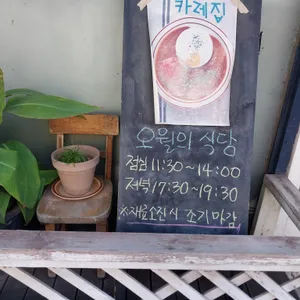 카레집
오월의 식당
점심 11:30~14:00
저녁 17:30~19:30
※재료소진시 조기마감